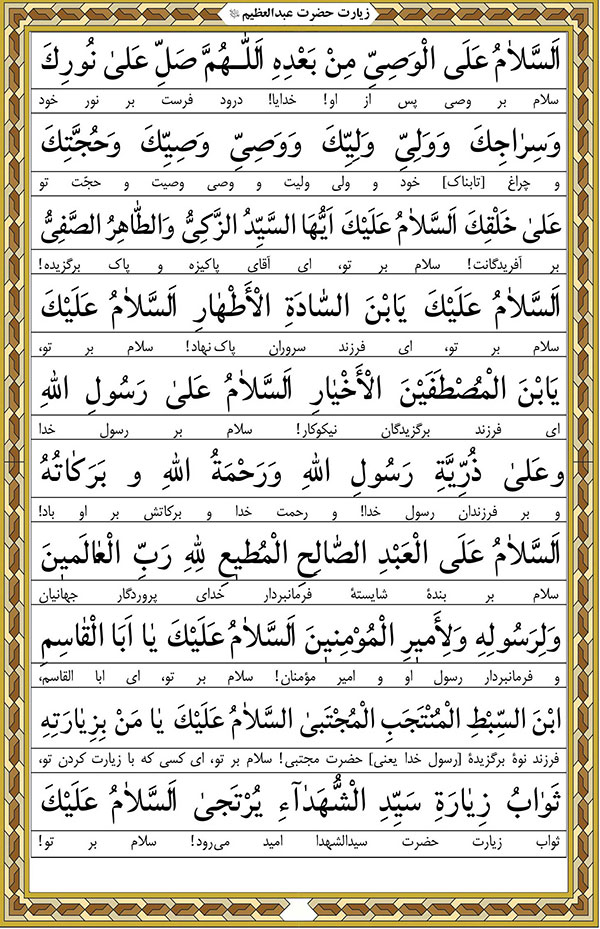 زیارت حضرت عبدالعظیم
اَلسَّلاٰمُ عَلَى الْوَصِىِّ مِنْ بَعْدِهِ اَللّٰـهُمَّ صَلِّ عَلىٰ نُورِكَ
سلام بر وصی پس از او! خدایا! درود فرست بر نور خود
وَسِرٰاجِكَ وَوَلِىِّ وَلِيِّكَ وَوَصِىِّ وَصِيِّكَ وَحُجَّتِكَ
و چراغ [تابناک] خود و ولی ولیت و وصی وصیت و حجّت تو
عَلىٰ خَلْقِكَ اَلسَّلاٰمُ عَلَيْكَ اَيُّهَا السَّيِّدُ الزَّكِىُّ وَالطّٰاهِرُ الصَّفِىُّ
بر آفریدگانت! سلام بر تو، ای آقای پاکیزه و پاک برگزیده!
اَلسَّلاٰمُ عَلَيْكَ يَابْنَ السّٰادَةِ الْأَطْهٰارِ اَلسَّلاٰمُ عَلَيْكَ
سلام بر تو، ای فرزند سروران پاک‌نهاد! سلام بر تو،
يَابْنَ الْمُصْطَفَيْنَ الْأَخْيٰارِ اَلسَّلاٰمُ عَلىٰ رَسُولِ اللهِ
ای فرزند برگزیدگان نیکوکار! سلام بر رسول خدا
وعَلىٰ ذُرِّيَّةِ رَسُولِ اللهِ وَرَحْمَةُ اللهِ و بَرَكٰاتُهُ
و بر فرزندان رسول خدا! و رحمت خدا و برکاتش بر او باد!
اَلسَّلاٰمُ عَلَى الْعَبْدِ الصّٰالِحِ الْمُطيعِ لِلّٰهِ رَبِّ الْعٰالَمينَ
سلام بر بندهٔ شایستهٔ فرمانبردار خدای پروردگار جهانیان
وَلِرَسُولِهِ وَلِأَميرِ الْمُوْمِنينَ اَلسَّلاٰمُ عَلَيْكَ يٰا اَبَا الْقٰاسِمِ
و فرمانبردار رسول او و امیر مؤمنان! سلام بر تو، ای ابا القاسم،
ابْنَ السِّبْطِ الْمُنْتَجَبِ الْمُجْتَبىٰ السَّلاٰمُ عَلَيْكَ يٰا مَنْ بِزِيٰارَتِهِ
فرزند نوهٔ برگزیدهٔ [رسول خدا یعنی] حضرت مجتبی! سلام بر تو، ای کسی که با زیارت کردن تو،
ثَوٰابُ زِيٰارَةِ سَيِّدِ الْشُّهَدٰآءِ يُرْتَجىٰ اَلسَّلاٰمُ عَلَيْكَ
ثواب زیارت حضرت سیدالشهدا امید می‌رود! سلام بر تو!